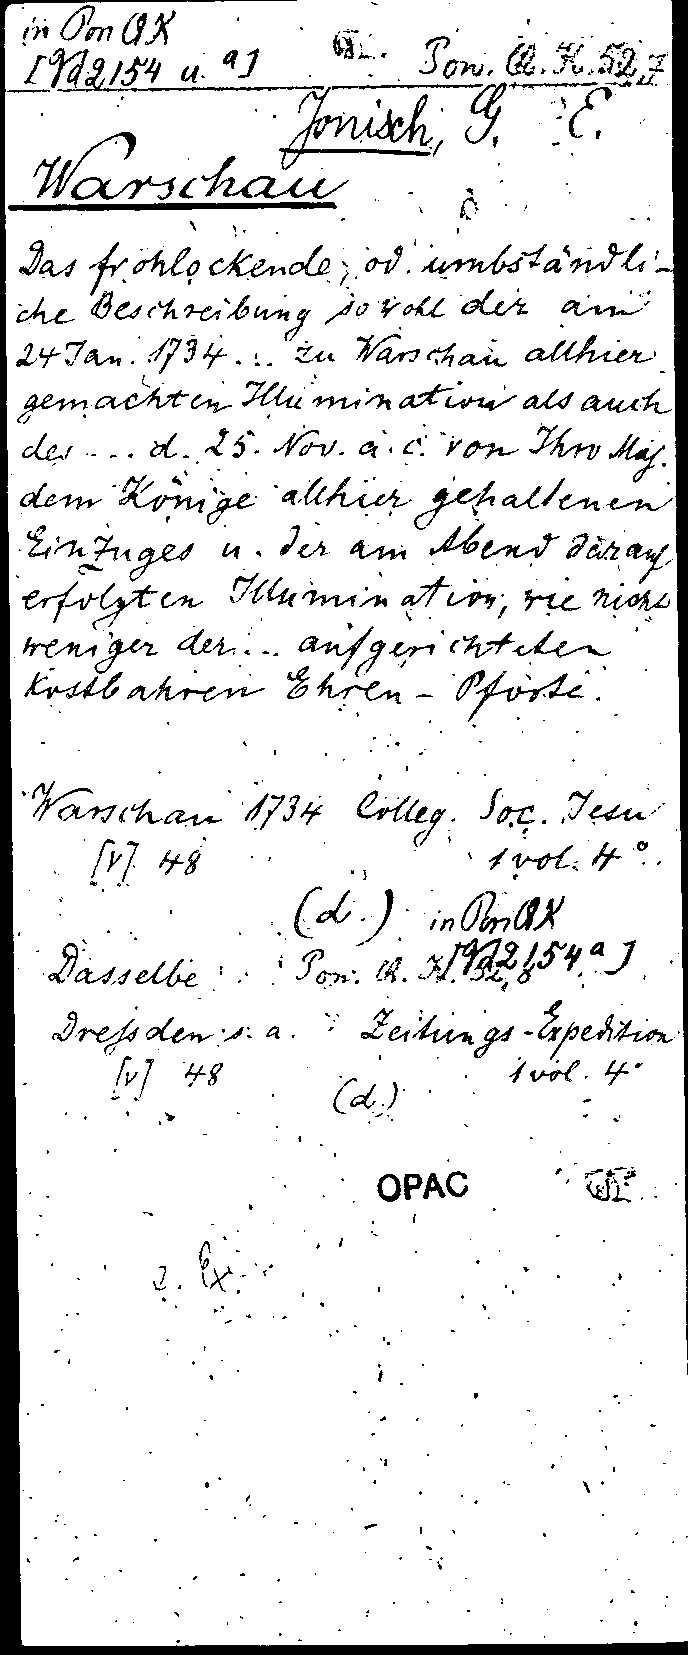 in Pon QK
[Vd2154 u. a]
Pon. Q. K. 52,7
Jonisch, G. E.
Warschau
Das frohlockende, od. umbständli-
che Beschreibung sowohl der am
24 Jan. 1734 ... zu Warschau allhier
gemachten Illumination als auch
des ... d. 25. Nov. a. c. von Ihro Maj.
dem Könige allhier gehaltenen
Einzuges u. der am Abend darauf
erfolgten Illumination, wie nicht
weniger der ... aufgerichteten
Kostbahren Ehren-Pforte.
Warschau 1734 Colleg. Soc. Jesu
[V] 48 1 vol. 4°
(d.) in Pon QK
[Vd2154a]
Dasselbe Pon. Q. K.
Dreßden s. a. Zeitungs-Expedition
[V] 48 1 vol. 4°
(d.)
OPAC
2. Ex.